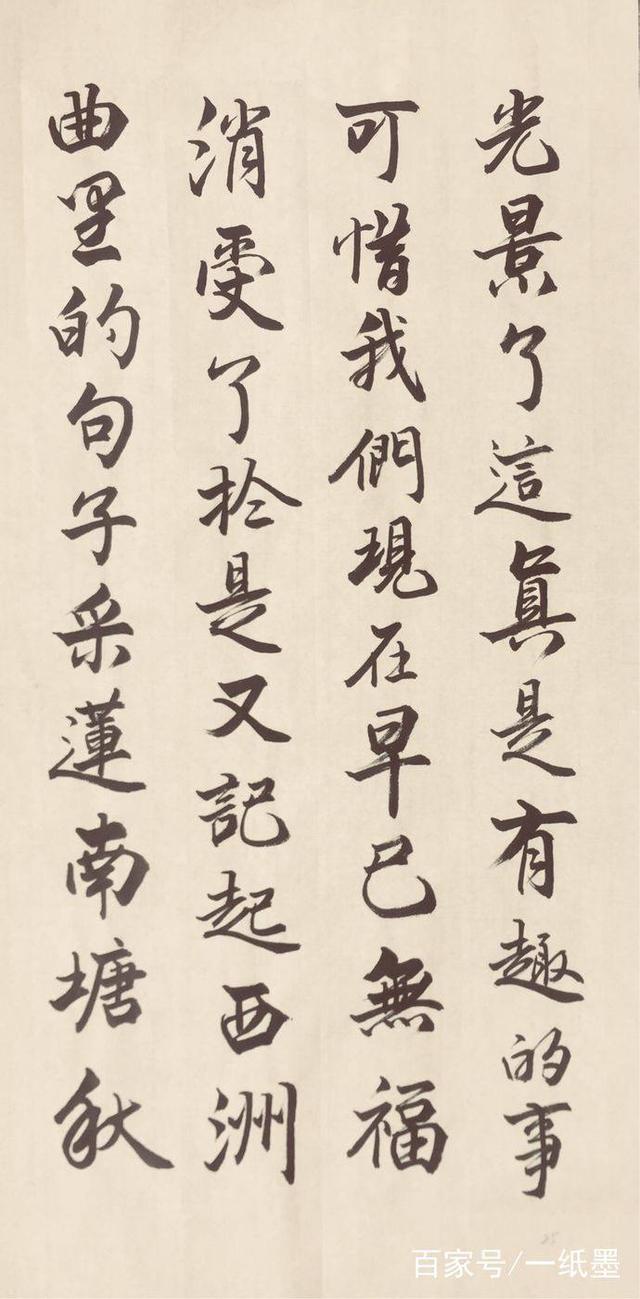 光景了這真是有趣的事
可惜我們現在早已無福
消受了於是又記起西洲
曲里的句子采蓮南塘秋
百家号/一纸墨